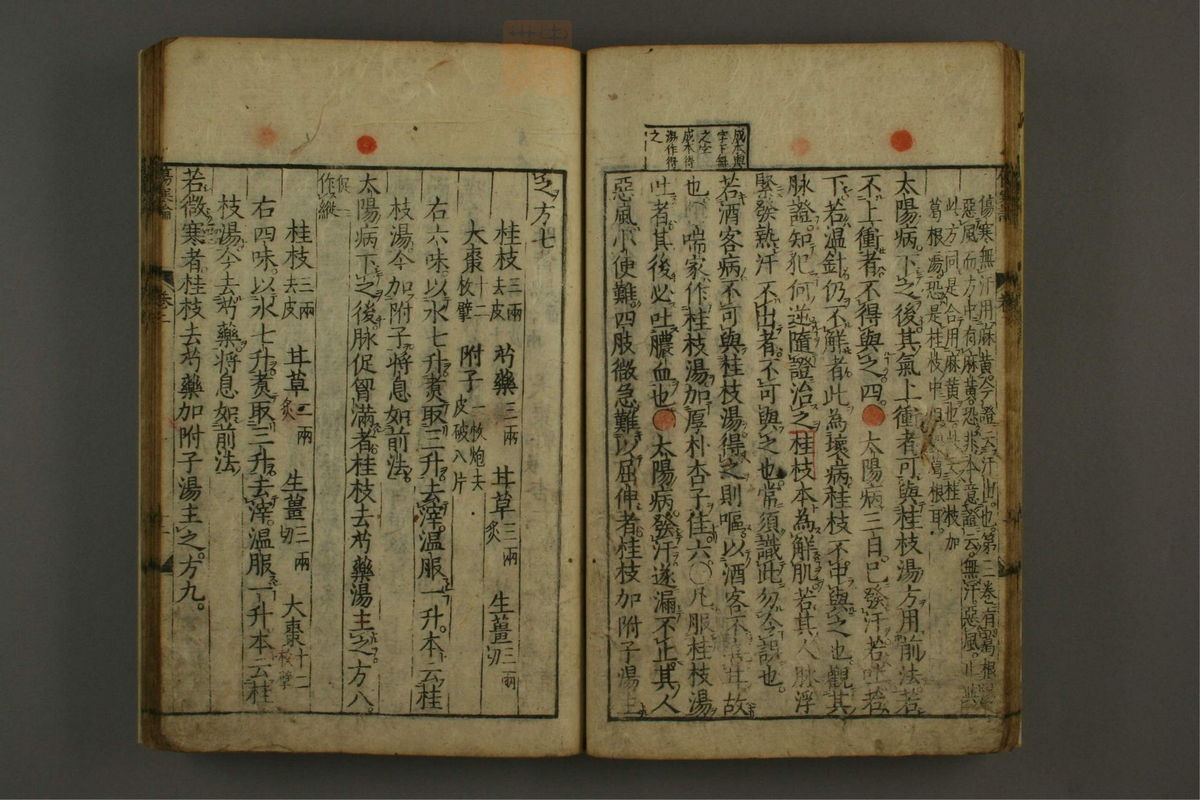 成本與
字下無
之字
成本得
湯作得
之
傷寒無汗用麻黃今證云汗出
惡風而方中有麻黃恐非本意證云無汗惡風正與
此方同是合用麻黃也此云桂枝加
葛根湯恐是桂枝中但加葛根耳
太陽病下之後其氣上衝者可與桂枝湯方用前法若
不上衝者不得與之四 太陽病三日已發汗若吐若
下若溫針仍不解者此為壞病桂枝不中與之也觀其
脉證知犯何逆隨證治之桂枝本為解肌若其人脉浮
緊發熱汗不出者不可與之也常須識此勿令誤也
若酒客病不可與桂枝湯得之則嘔以酒客不喜甘故
也 喘家作桂枝湯加厚朴杏子佳六 凡服桂枝湯
吐者其後必吐膿血也 太陽病發汗遂漏不止其人
惡風小便難四肢微急難以屈伸者桂枝加附子湯主
之方七
桂枝三兩去皮 芍藥三兩 甘草三兩炙 生薑三兩切
大棗十二枚擘 附子一枚炮去皮破八片
右六味以水七升煮取三升去滓溫服一升本云桂
枝湯今加附子將息如前法
太陽病下之後脉促胷滿者桂枝去芍藥湯主之方八
促作縱
桂枝三兩去皮 甘草二兩炙 生薑三兩切 大棗十二枚擘
右四味以水七升煮取三升去滓溫服一升本云桂
枝湯今去芍藥將息如前法
若微寒者桂枝去芍藥加附子湯主之方九